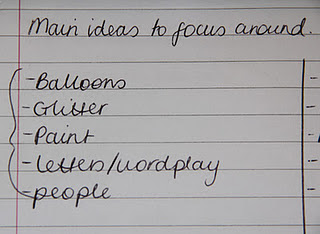 Main ideas to focus around.
-Balloons
-Glitter
-Paint
-letters/wordplay
-people